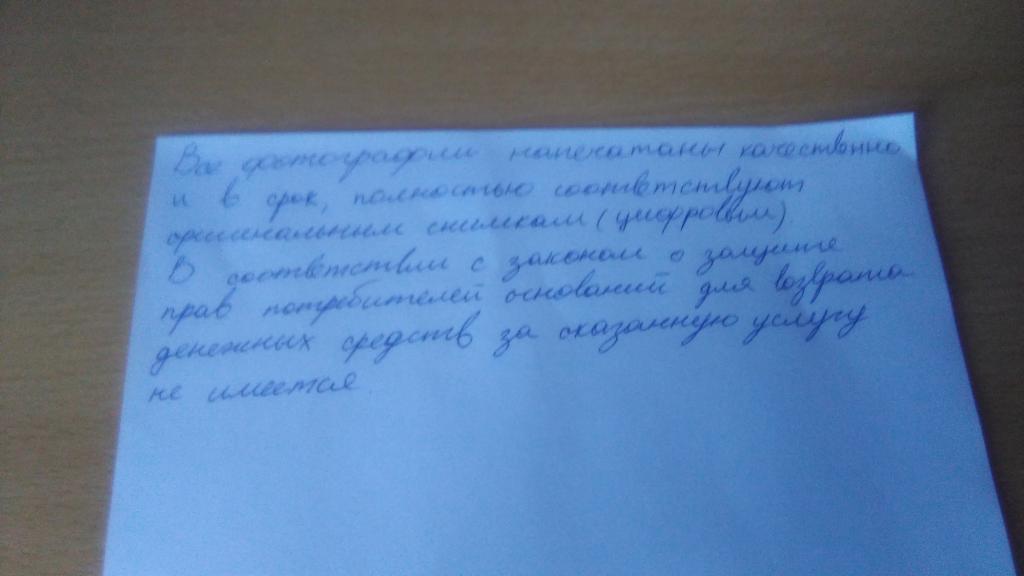 Все фотографии напечатаны качественно
и в срок, полностью соответствуют
оригинальным снимкам (цифровым).
В соответствии с законом о защите
прав потребителей оснований для возврата
денежных средств за оказанную услугу
не имеется.